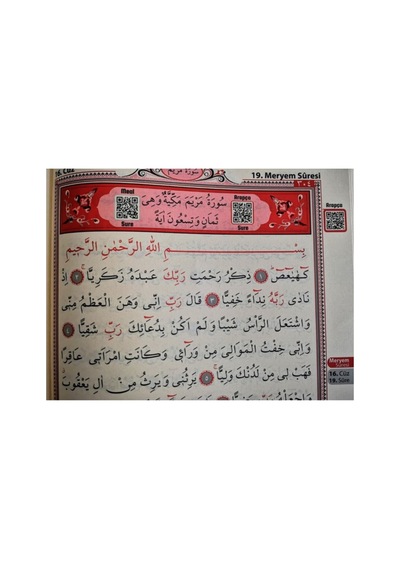 16. Cüz
سورة مريم
19. Meryem Sûresi
٣٠٤
Meal
Arapça
سُورَةُ مَرْيَمَ مَكِّيَّةٌ وَهِيَ
ثَمَانٍ وَتِسْعُونَ اٰيَةً
Sure
Sure
Arapça
بِسْمِ اللّٰهِ الرَّحْمٰنِ الرَّحٖيمِ
كٓهٰيٰعٓصٓ ١ ذِكْرُ رَحْمَتِ رَبِّكَ عَبْدَهُ زَكَرِيَّا ٢ اِذْ
نَادٰى رَبَّهُ نِدَٓاءً خَفِيًّا ٣ قَالَ رَبِّ اِنّٖى وَهَنَ الْعَظْمُ مِنّٖى
وَاشْتَعَلَ الرَّأْسُ شَيْبًا وَلَمْ اَكُنْ بِدُعَٓائِكَ رَبِّ شَقِيًّا ٤
وَاِنّٖى خِفْتُ الْمَوَالِىَ مِنْ وَرَٓائٖى وَكَانَتِ امْرَاَتٖى عَاقِرًا
فَهَبْ لٖى مِنْ لَدُنْكَ وَلِيًّا ٥ يَرِثُنٖى وَيَرِثُ مِنْ اٰلِ يَعْقُوبَ
وَاجْعَلْهُ رَبِّ
Meryem
Sûresi
16. Cüz
19. Sûre